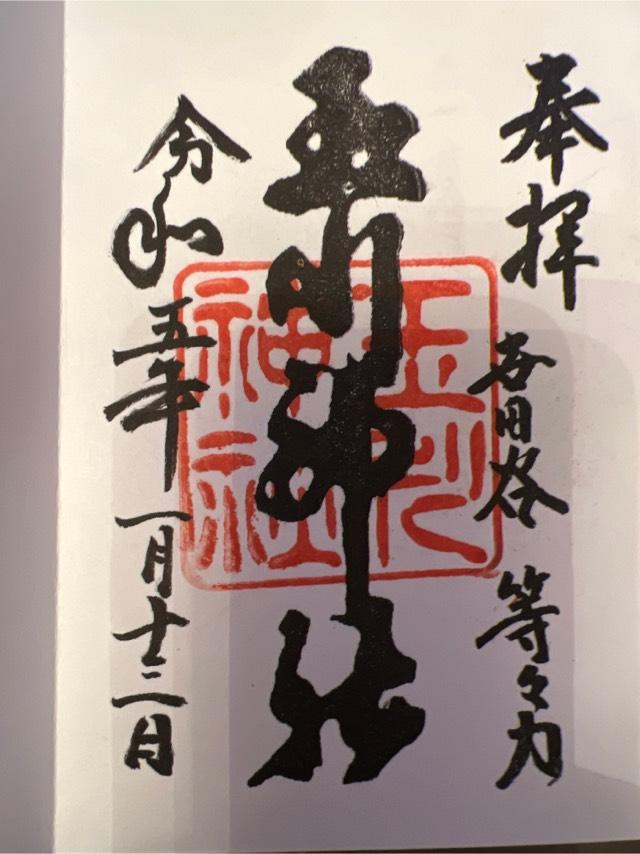 奉拝
世田谷 等々力
玉川神社
玉川神社
令和五年一月十二日